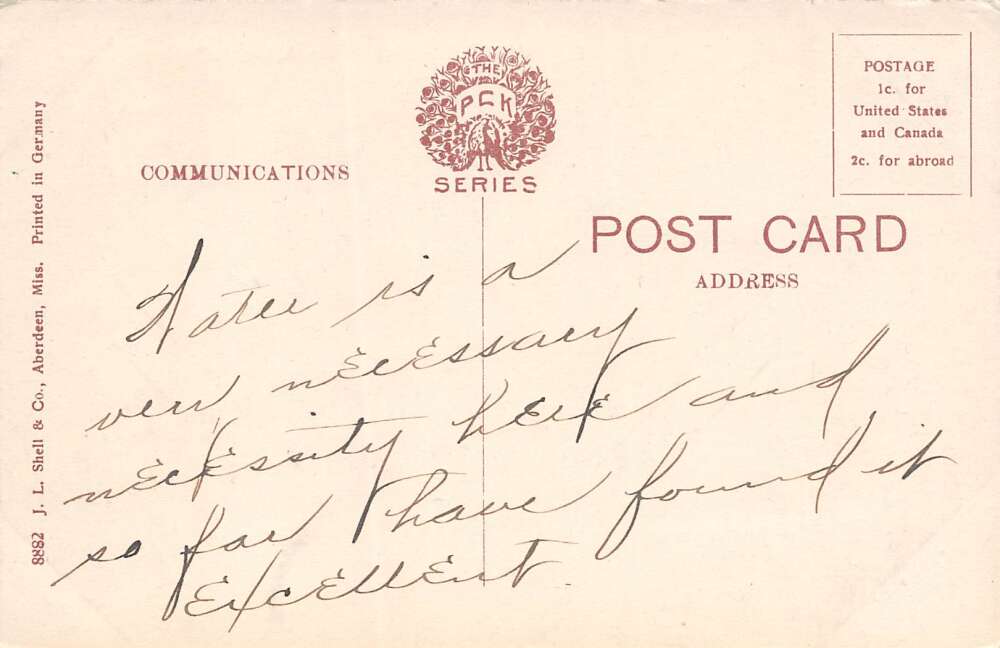 8882 J. L. Shell & Co., Aberdeen, Miss. Printed in Germany
COMMUNICATIONS
THE
PCK
SERIES
POSTAGE
1c. for
United States
and Canada
2c. for abroad
POST CARD
ADDRESS
Water is a
very necessary
necessity here and
so far have found it
Excellent.